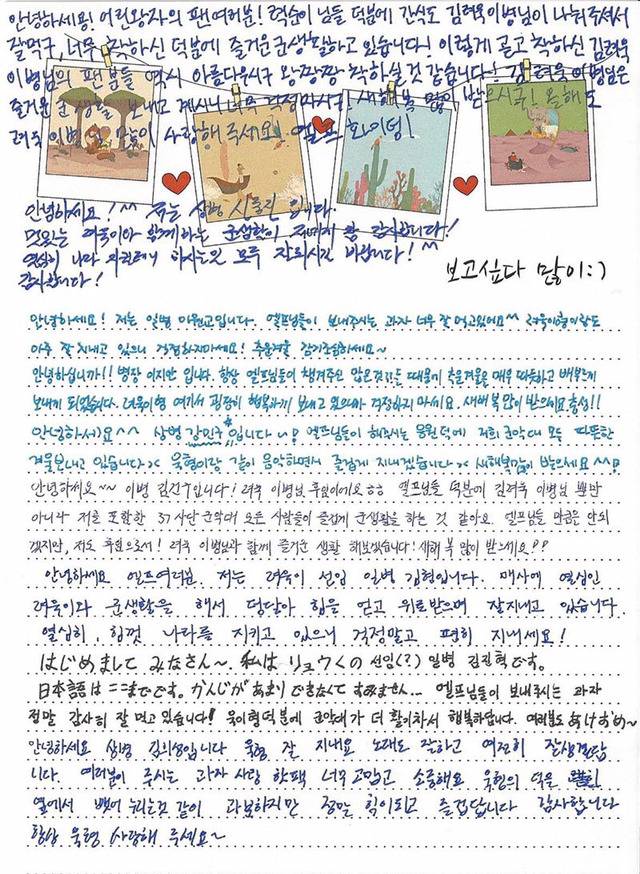 안녕하세용! 어린왕자의 팬여러분! 려순이 님들 덕분에 간식도 김려욱 이병님이 나눠주셔서
잘먹구, 너무 착하신 덕분에 즐거운 군생활하고 있습니다! 이렇게 곱고 착하신 김려욱
이병님의 팬분들 역시 아름다우시구 왕짱짱 착하실것 같습니다! 김려욱 이병님은
즐거운 군생활 보내고 계시니 너무 걱정마시구 새해 복 많이 받으시구! 올해도
려욱 이병님 많이 사랑해 주세요! 엘프 화이팅!
안녕하세요! ^^ 저는 상병 입니다.
멋있는 려욱이와 함께하는 군생활이 감사합니다!
열심히 하시는일 모두 잘되시길 바랍니다! ^^
감사합니다!
보고싶다 많이:)
안녕하세요! 저는 일병 이원교입니다. 엘프님들이 보내주시는 과자 너무 잘 먹고있어요^^ 려욱이형이랑도
아주 잘 지내고 있으니 걱정하지마세요! 추운겨울 감기조심하세요~
안녕하십니까!! 병장 이지만 입니다. 항상 엘프님들이 챙겨주신 많은것 때문에 추운겨울을 매우 따뜻하고 배부르게
보내게 되었습니다. 려욱이형 여기서 굉장히 행복하게 보내고 있으니까 걱정하지 마세요. 새해 복 많이 받으세요 충성!!
안녕하세요^^ 상병 강민구 입니다 ~! 엘프님들이 해주시는 응원덕에 저희 군악대 모두 따뜻한
겨울보내고 있습니다>< 욱형이랑 같이 음악하면서 즐겁게 지내겠습니다>< 새해복많이 받으세요^^!
안녕하세요~~ 이병 김진수입니다! 려욱 이병님 후임이에요ㅎㅎ 엘프님들 덕분에 김려욱 이병님 뿐만
아니라 저를 포함한 37사단 군악대 모든 사람들이 즐겁게 군생활을 하는 것 같아요. 엘프님들 만큼은 안되
겠지만, 저도 후임으로서! 려욱 이병님과 함께 즐거운 생활 해보겠습니다! 새해 복 많이 받으세요??
안녕하세요 엘프여러분. 저는 려욱이 선임 일병 김형입니다. 매사에 열심인
려욱이와 군생활을 해서 덩달아 힘을 얻고 위로받으며 잘지내고 있습니다.
열심히 힘껏 나라를 지키고 있으니 걱정말고 편히 지내세요!
はじめまして みなさん~. 私は リョウくの 선임(?) 일병 김진혁です。
日本語は ここまでです。かんじが あまり できなくて すみません... 엘프님들이 보내주시는 과자
정말 감사히 잘 먹고 있습니다! 욱이형덕분에 군악대가 더 활기차서 행복하답니다. 여러분도 あけおめ~
안녕하세요 상병 김의성입니다 욱형 잘 지내요 노래도 잘하고 여전히 잘생겼답
니다. 여러분이 주시는 과자 사랑 한팩 너무 고맙고 소중해요 욱형의 덕을
옆에서 뺏어 누리는것 같이 과분하지만 정말 힘이되고 즐겁답니다 감사합니다
항상 욱형 사랑해 주세요~